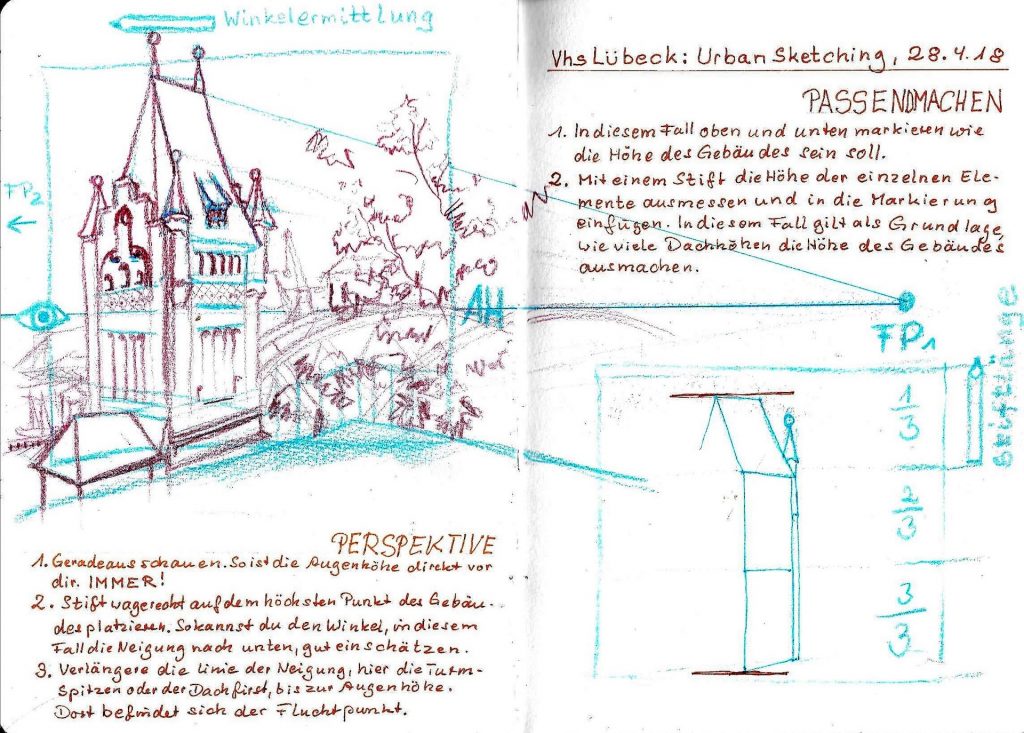 Winkelermittlung
FP2
←
AH
PERSPEKTIVE
1. Geradeaus schauen. So ist die Augenhöhe direkt vor
dir. IMMER!
2. Stift wagerecht auf dem höchsten Punkt des Gebäu-
des platzieren. So kannst du den Winkel, in diesem
Fall die Neigung nach unten, gut einschätzen.
3. Verlängere die Linie der Neigung, hier die Turm-
Spitzen oder der Dachfirst, bis zur Augenhöhe.
Dort befindet sich der Fluchtpunkt.
Vhs Lübeck: Urban Sketching, 28.4.18
PASSENDMACHEN
1. In diesem Fall oben und unten markieren wie
die Höhe des Gebäudes sein soll.
2. Mit einem Stift die Höhe der einzelnen Ele-
mente ausmessen und in die Markierung
einfügen. In diesem Fall gilt als Grundlage,
wie viele Dachhöhen die Höhe des Gebäudes
ausmachen.
FP1
1/3
2/3
3/3
Stiftlänge